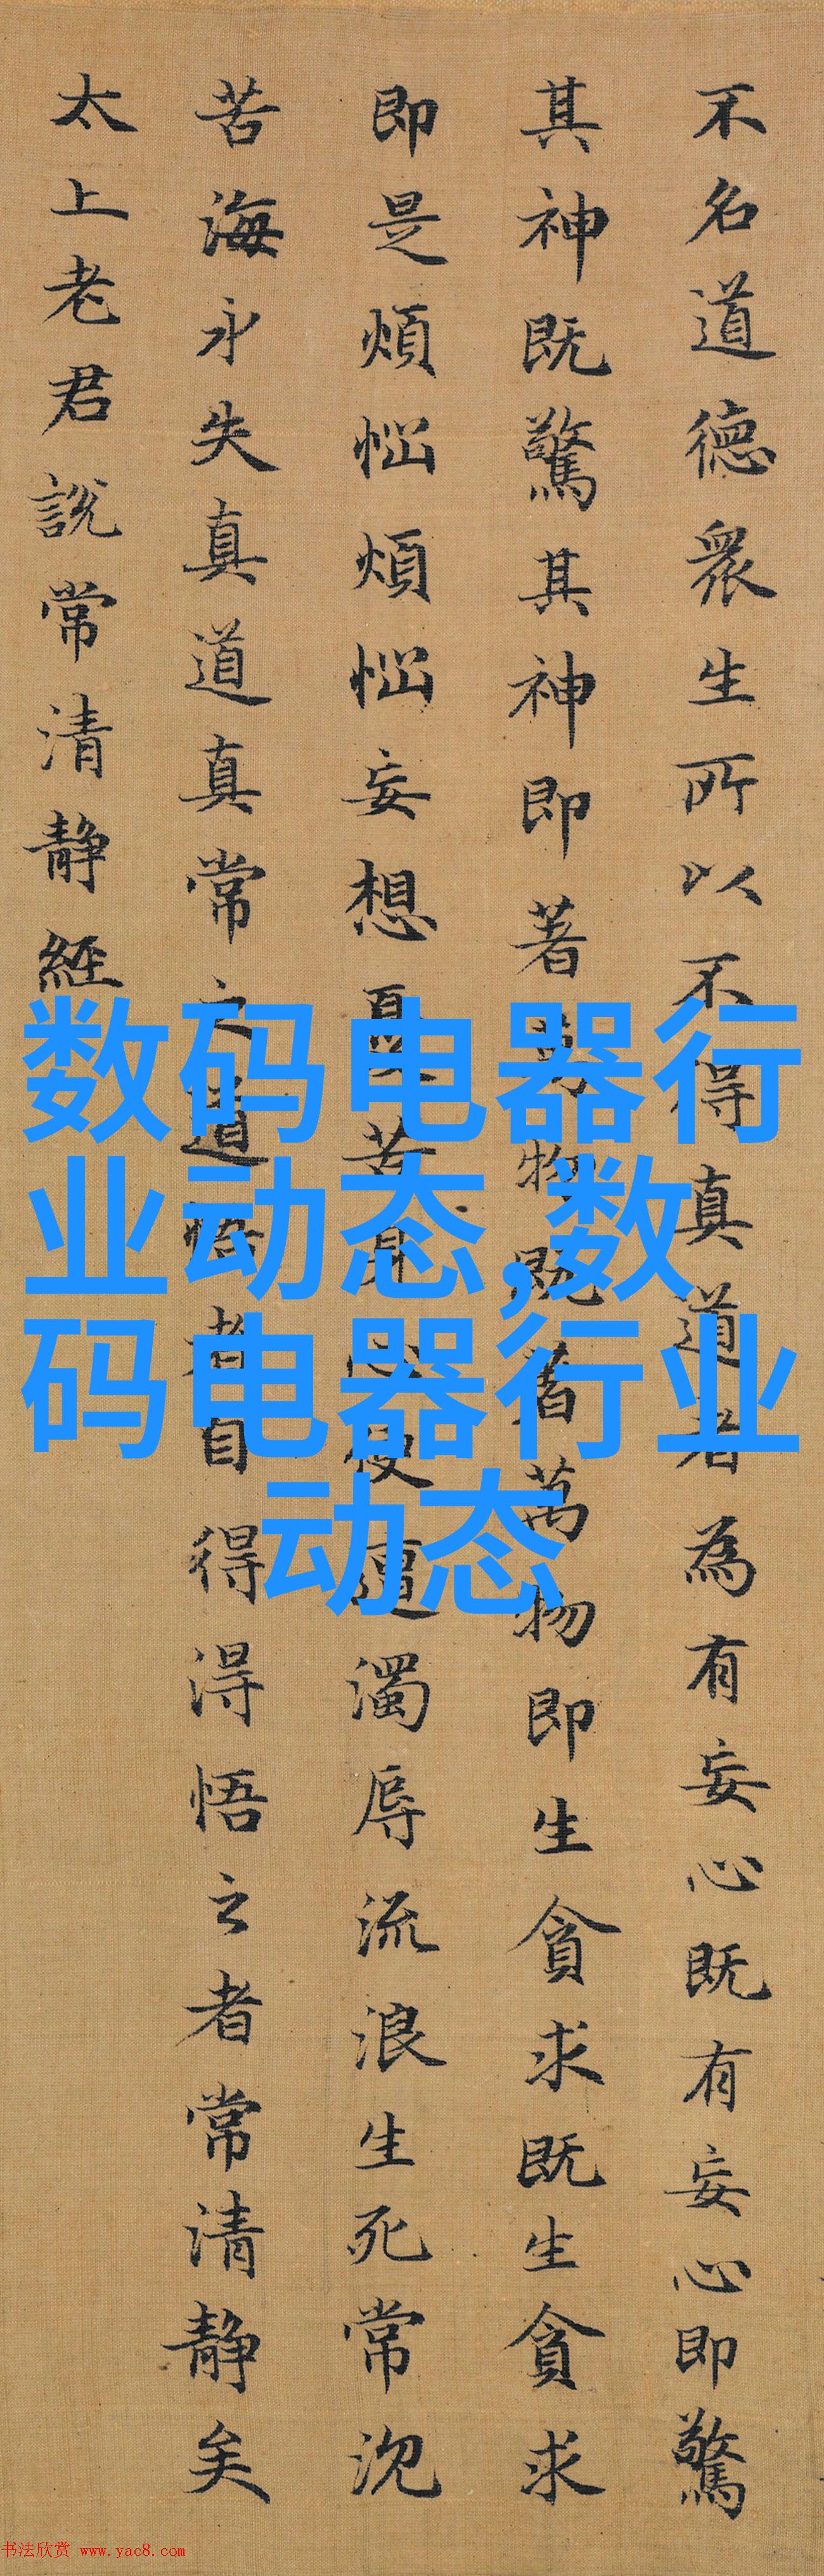 不名道德眾生所以不得真道者為有妄心既有妄心即驚
其神既驚其神即著萬物既著萬物即生貪求既生貪求
即是煩惱煩惱妄想憂苦身心便遭濁辱流浪生死常沉
苦海永失真道真常之道悟者自得得悟之者常清静矣
太上老君說常清静經
数码电器行
业动态,数
码电器行业
动态
书法欣赏 www.yac8.com